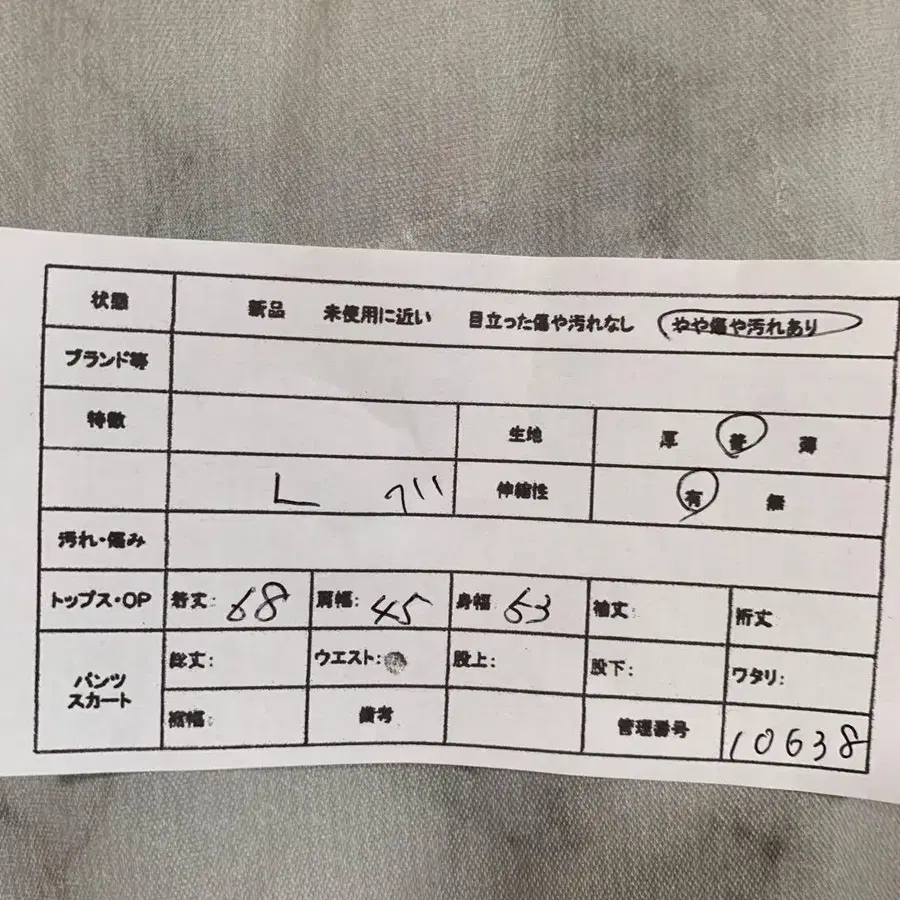 状態 新品 未使用に近い 目立った傷や汚れなし やや傷や汚れあり
ブランド等
特徴 生地 厚 普 薄
L 伸縮性 有 無
汚れ・傷み
トップス・OP 着丈: 68 肩幅: 45 身幅: 53 袖丈: 裄丈
パンツ スカート 総丈: ウエスト: 股上: 股下: ワタリ:
裾幅: 備考 管理番号 10638